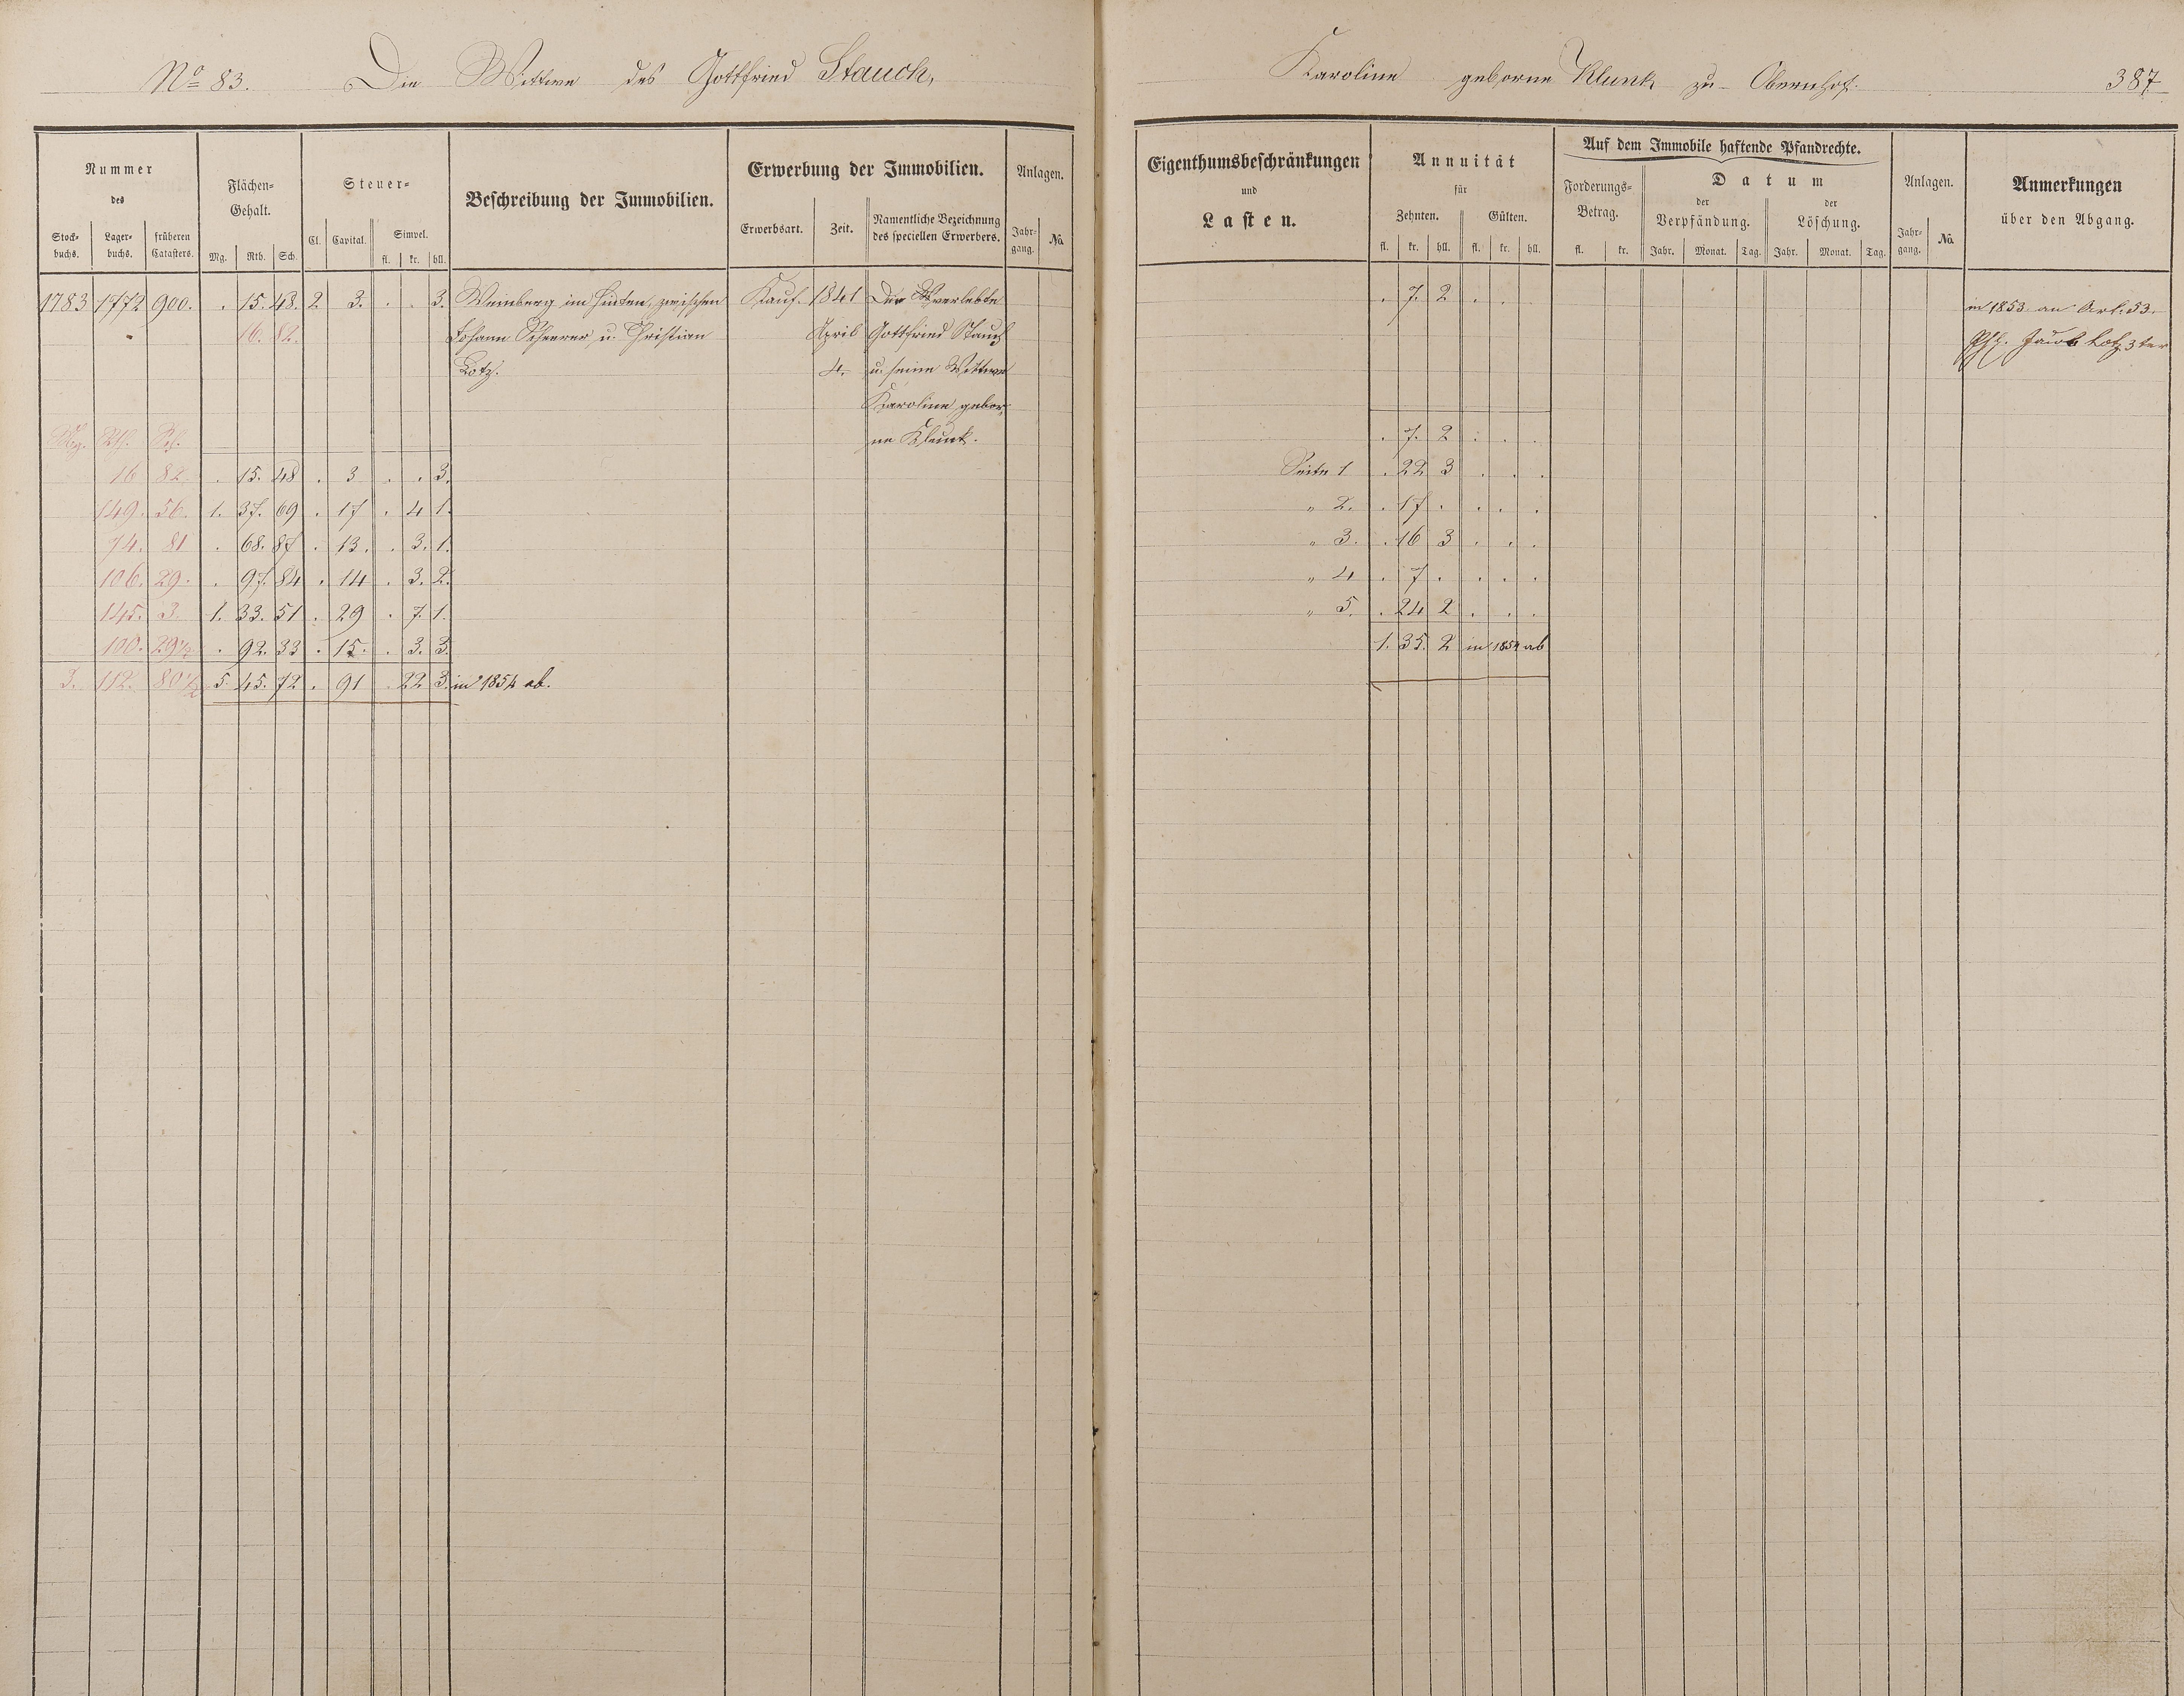 No 83. Die Wittwe des Gottfried Stauch, Karoline geborne Klunk zu Obernhof. 387
Nummer
des
Stock-
buchs.
Lager-
buchs.
früheren
Catasters.
Flächen-
Gehalt.
Mg. Rth. Sch.
Steuer-
Cl. Capital. Simpel.
fl. kr. hll.
Beschreibung der Immobilien.
Erwerbung der Immobilien.
Erwerbsart. Zeit. Namentliche Bezeichnung
des speciellen Erwerbers.
Anlagen.
Jahr-
gang. No.
Eigenthumsbeschränkungen
und
Lasten.
Annuität
für
Zehnten. Gülten.
fl. kr. hll. fl. kr. hll.
Auf dem Immobile haftende Pfandrechte.
Forderungs-
Betrag.
fl. kr.
Datum
der
Verpfändung.
der
Löschung.
Jahr. Monat. Tag. Jahr. Monat. Tag.
Anlagen.
Jahr-
gang. No.
Anmerkungen
über den Abgang.
1783 1772 900. . 15. 48. 2 3. . . 3. Weinberg im zwischen Kauf. 1841 Der Verlebte . 7. 2 . . in 1853 an Art. 53.
16. 82. Johann Scheerer u. Christian April Gottfried Stauch Jacob Lotz 3ter
Lotz. 4. u. seine Wittwe
Karoline gebor-
Mg. Rth. Sch. ne Klunk. . 7. 2 . . .
16 82 . 15. 48 . 3 . . 3. Seite 1 . 22 3 . . .
149. 56. 1. 37. 69 . 17 . 4 1. " 2. . 17 . . . .
74. 81 . 68. 87 . 13. . 3. 1. " 3. . 16 3 . . .
106. 29. . 97. 84 . 14 . 3. 2. " 4 . 7 . . . .
145. 3. 1. 33. 51 . 29 . 7. 1. " 5. . 24 2 . . .
100. 29½ . 92. 33 . 15. . 3. 3. 1. 35. 2 in 1854 ab
3. 112. 80½ 5. 45. 72 . 91 . 22 3. in 1854 ab.